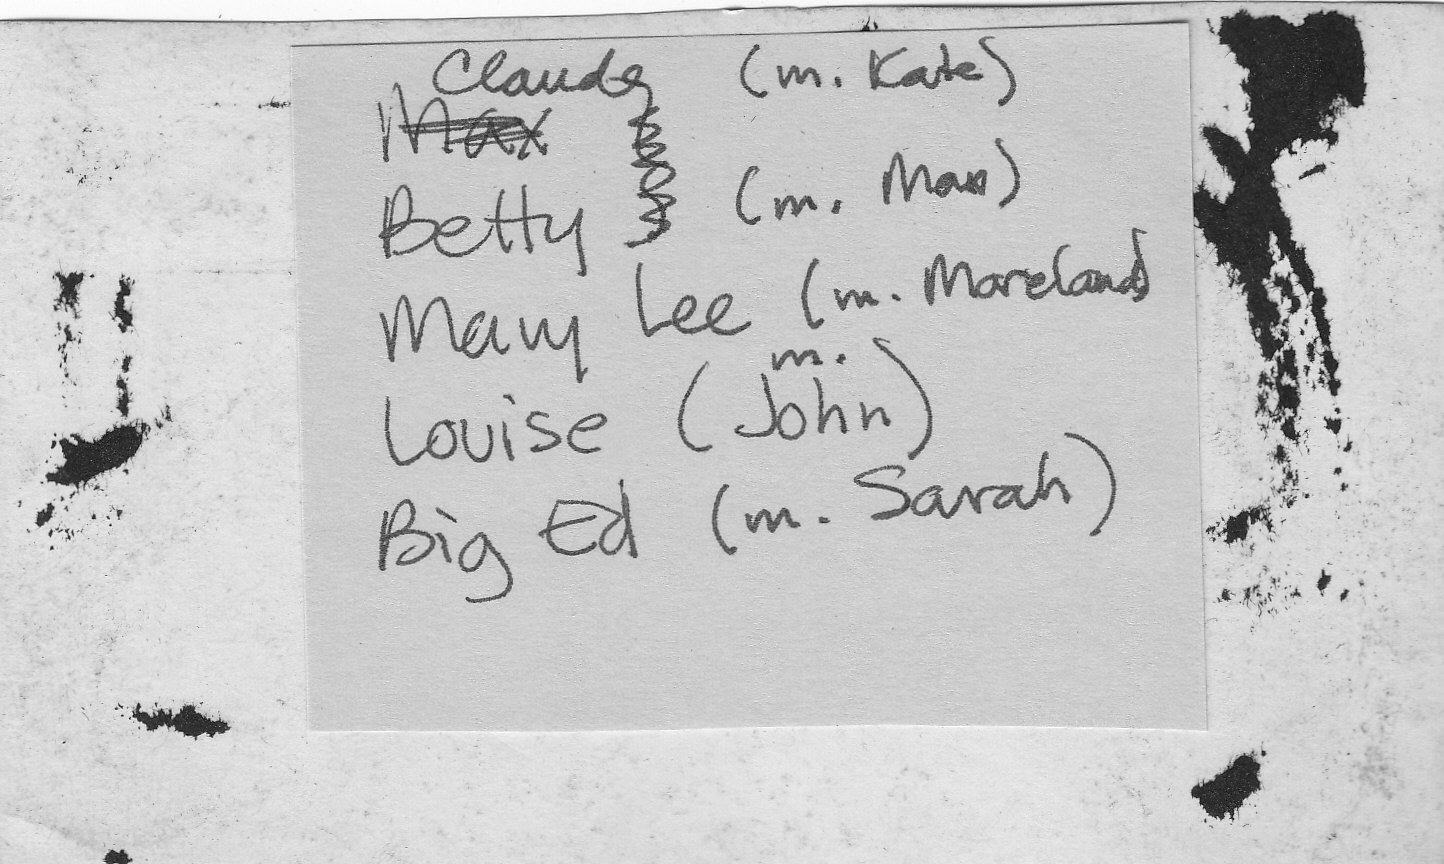 Claude (m. Kate)
Max
Betty (m. Max)
Mary Lee (m. Moreland)
Louise (m. John)
Big Ed (m. Sarah)